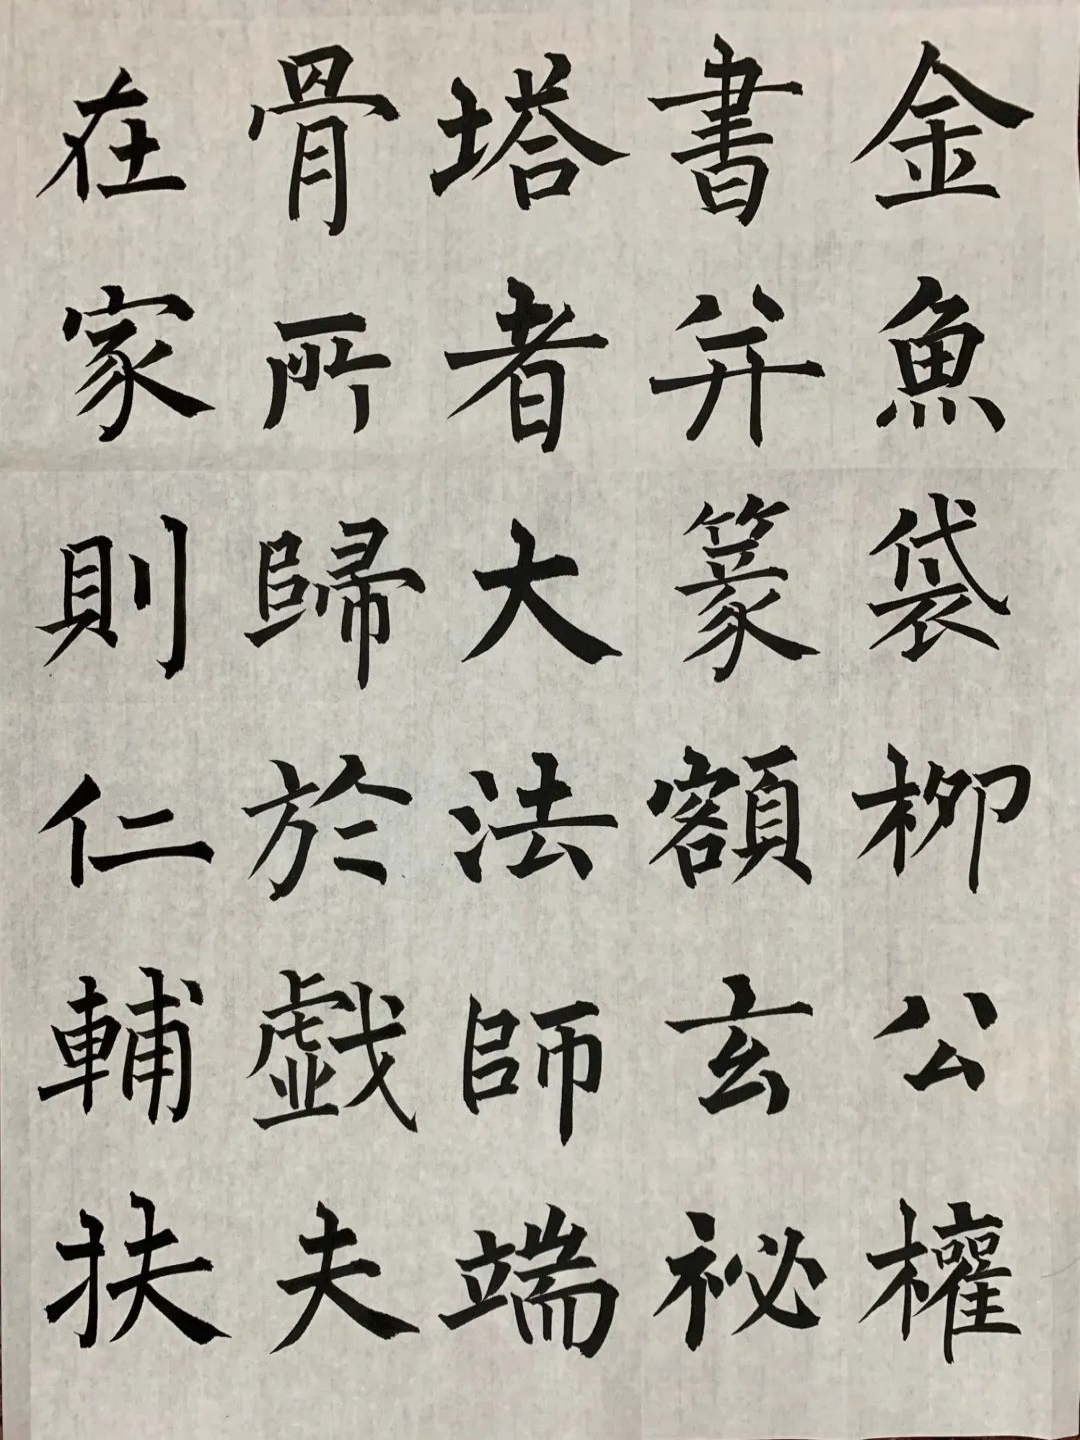 金魚袋柳公權
書并篆額玄祕
塔者大法師端
骨所歸於戯夫
在家則仁輔扶